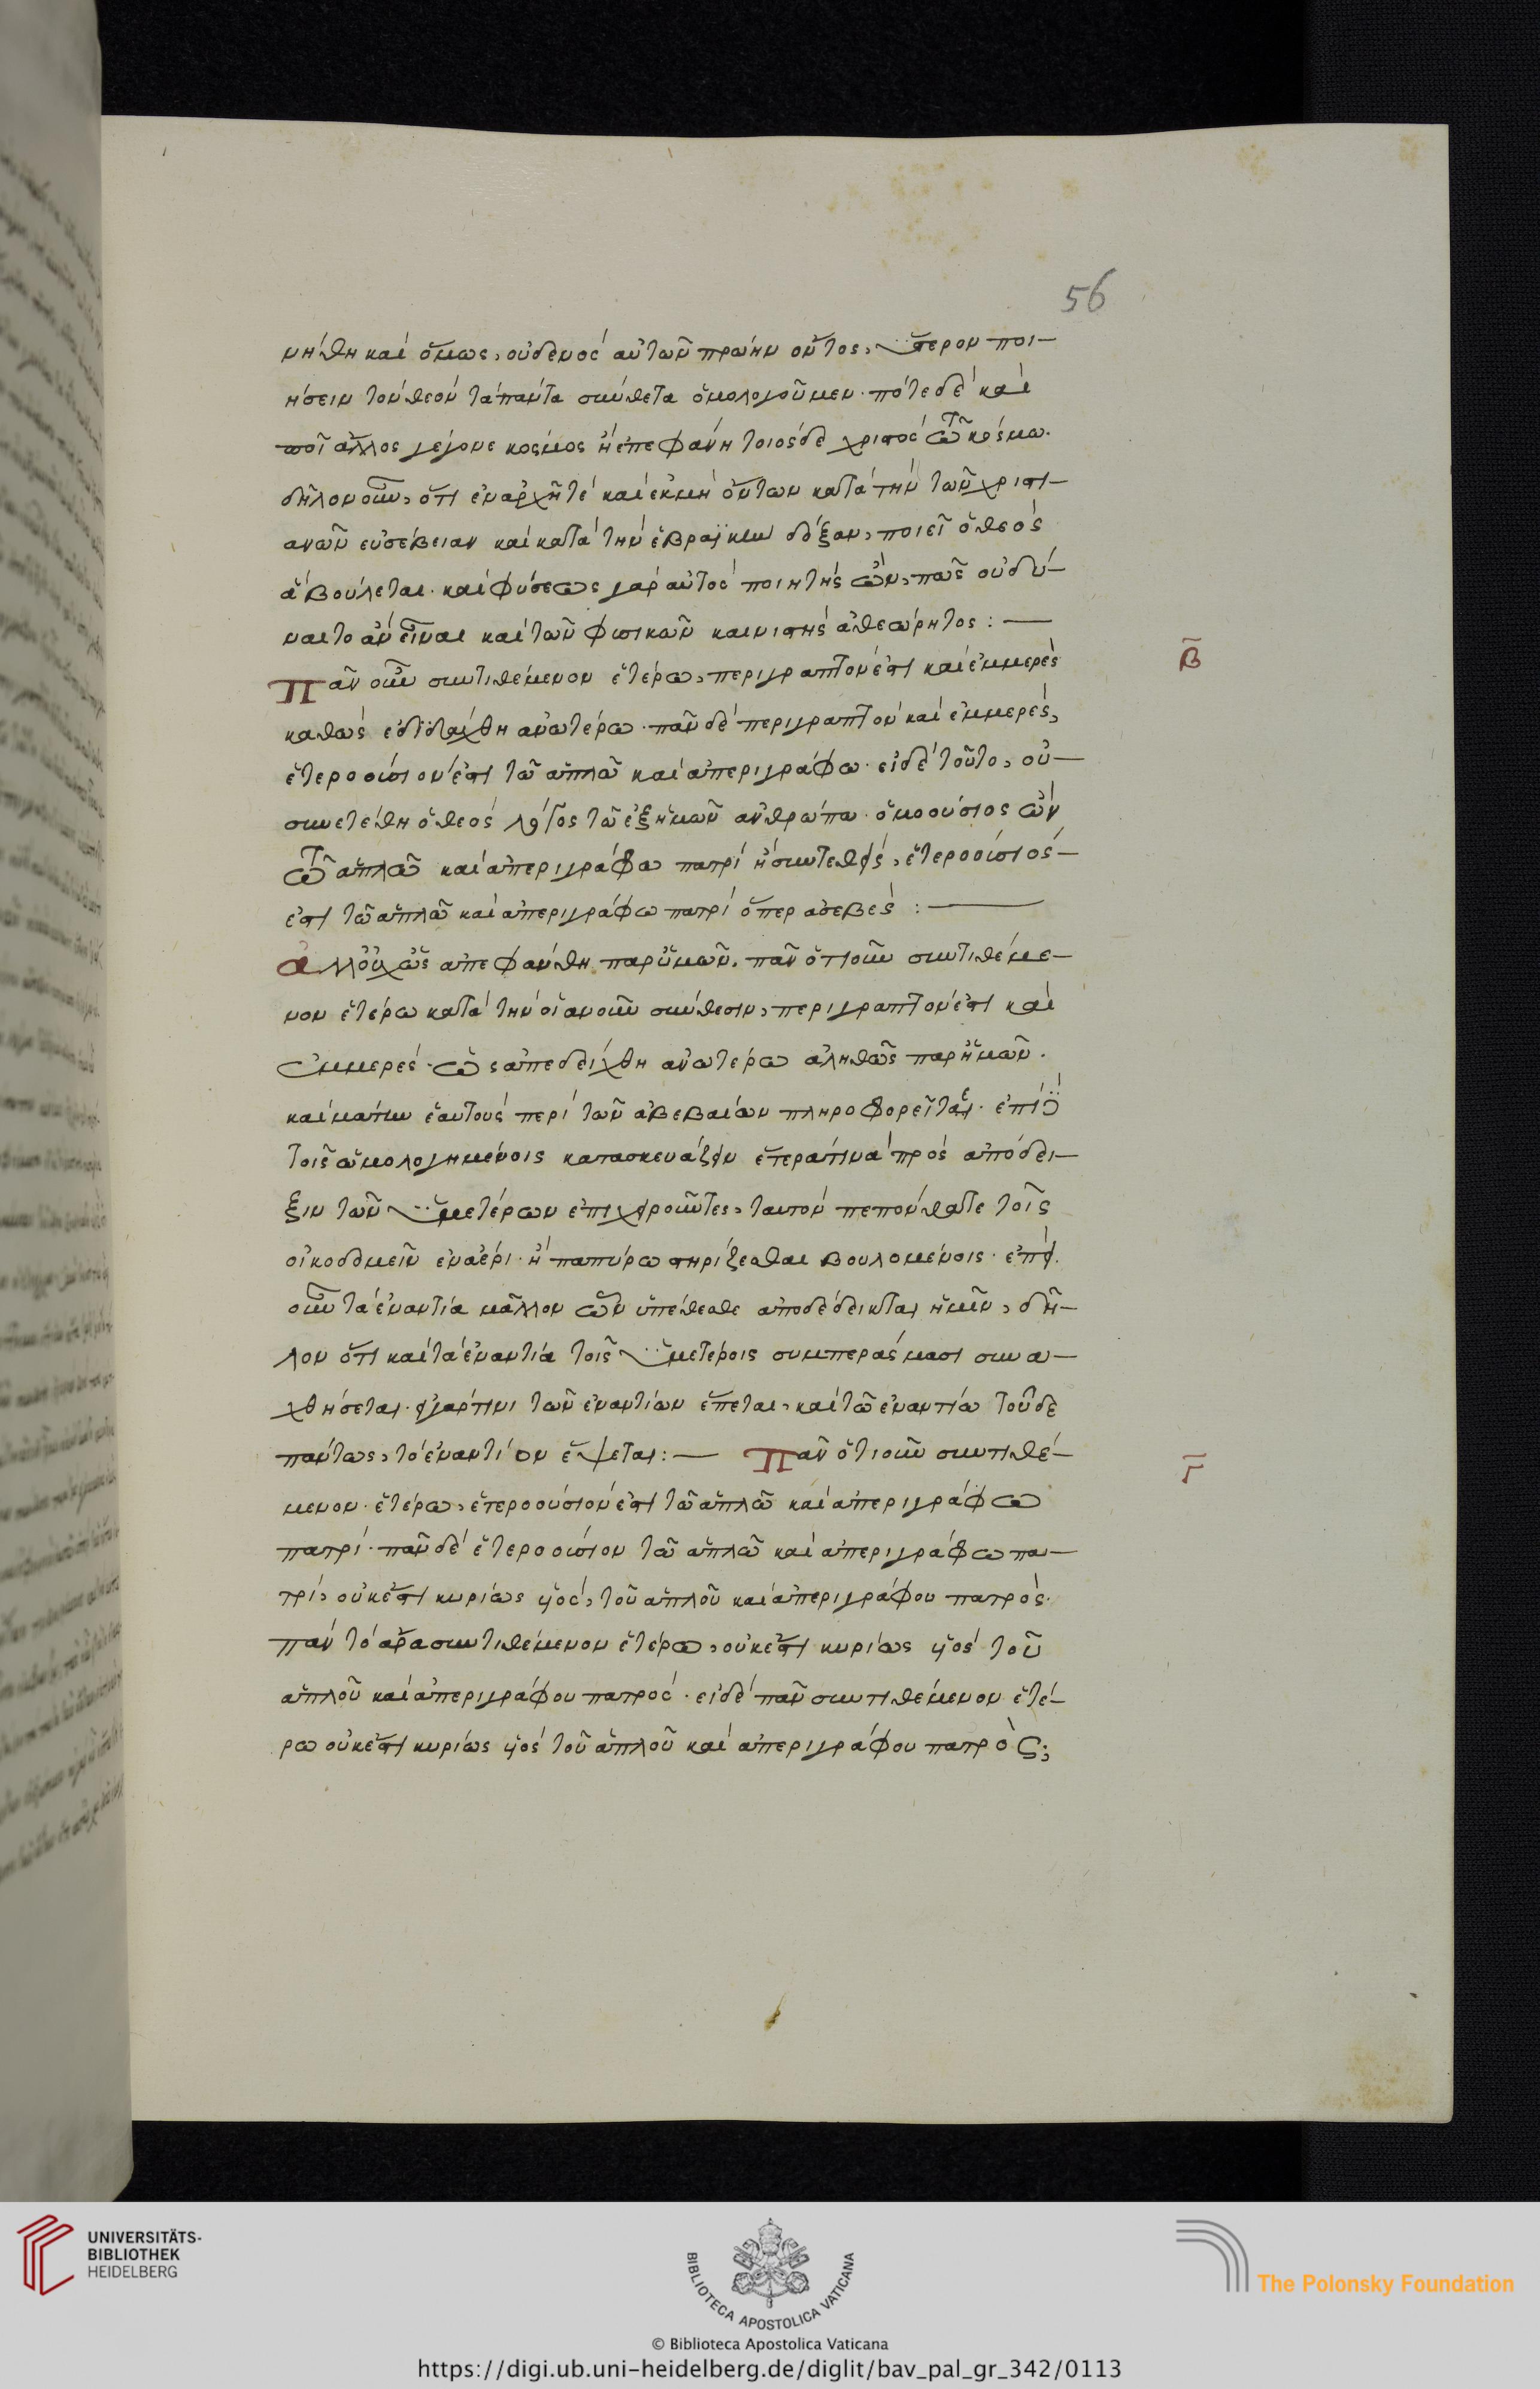 56
νήθη καὶ ὅμως, οὐδενὸς αὐτῶν πρώην ὄντος, ὕστερον ποι-
ήσειν τὸν θεὸν τὰ πάντα σύνθετα ὁμολογοῦμεν. πότε δὲ καὶ
ποῖ ἄλλος γέγονε κόσμος ἢ ἐπεφάνη τοιόσδε χριστὸς τῶ κόσμω.
δῆλον οὖν, ὅτι ἐν ἀρχῆ τὲ καὶ ἐκ μὴ ὄντων κατὰ τὴν τῶν χριστι-
ανῶν εὐσέβειαν καὶ κατὰ τὴν ἑβραϊκὴν δόξαν, ποιεῖ ὁ θεὸς
ἃ βούλεται. καὶ φύσεως γὰρ αὐτὸς ποιητὴς ὢν, πῶς οὐ δύ-
ναιτο ἂν εἶναι καὶ τῶν φυσικῶν καινιστὴς ἀθεώρητος : —
Πᾶν οὖν συντιθέμενον ἑτέρω, περιγραπτόν ἐστι καὶ ἐμμερὲς
β
καθὼς ἐδιδάχθη ἀνωτέρω. πᾶν δὲ περιγραπτὸν καὶ ἐμμερὲς,
ἑτεροούσιόν ἐστι τῶ ἁπλῶ καὶ ἀπεριγράφω. εἰ δὲ τοῦτο, οὐ-
συνετέθη ὁ θεὸς λόγος τῶ ἐξ ἡμῶν ἀνθρώπω. ὁμοούσιος ὢν
τῶ ἁπλῶ καὶ ἀπεριγράφω πατρί ἢ συντεθεὶς, ἑτεροούσιός-
ἐστι τῶ ἁπλῶ καὶ ἀπεριγράφω πατρί ὅπερ ἀσεβὲς : —
ἀλλ' οὐχ ὡς ἀπεφάνθη παρ' ὑμῶν. πᾶν ὁτιοῦν συντιθέμε-
νον ἑτέρω κατὰ τὴν οἱανοῦν σύνθεσιν, περιγραπτόν ἐστι καὶ
ἐμμερές. ὡς ἀπεδείχθη ἀνωτέρω ἀληθῶς παρ' ἡμῶν.
καὶ μάτην ἑαυτοὺς περὶ τῶν ἀβεβαίων πληροφορεῖται. ἐπὶ
τοῖς ὡμολογημένοις κατασκευάζειν ἕτερά τινα πρὸς ἀπόδει-
ξιν τῶν ὑμετέρων ἐπιχειροῦντες, ταυτὸν πεπόνθατε τοῖς
οἰκοδομεῖν ἐν ἀέρι. ἢ παπύρω στηρίζεσθαι βουλομένοις. ἐπεὶ
οὖν τὰ ἐναντία μᾶλλον ὧν ὑπέθεσθε ἀποδέδεικται ἡμῖν, δῆ-
λον ὅτι καὶ τὰ ἐναντία τοῖς ὑμετέροις συμπεράσμασι συνα-
χθήσεται. εἰ γάρ τινι τῶν ἐναντίων ἕπεται, καὶ τῶ ἐναντίω τοῦδε
πάντως, τὸ ἐναντίον ἕψεται : — Πᾶν ὁτιοῦν συντιθέ-
γ
μενον ἑτέρω, ἑτεροούσιόν ἐστι τῶ ἁπλῶ καὶ ἀπεριγράφω
πατρί. πᾶν δὲ ἑτεροούσιον τῶ ἁπλῶ καὶ ἀπεριγράφω πα-
τρί, οὐκ ἔστι κυρίως υἱὸς, τοῦ ἁπλοῦ καὶ ἀπεριγράφου πατρός.
πᾶν τὸ ἄρα συντιθέμενον ἑτέρω, οὐκ ἔστι κυρίως υἱὸς τοῦ
ἁπλοῦ καὶ ἀπεριγράφου πατρός. εἰ δὲ πᾶν συντιθέμενον ἑτέ-
ρω οὐκ ἔστι κυρίως υἱὸς τοῦ ἁπλοῦ καὶ ἀπεριγράφου πατρὸς;
UNIVERSITÄTS-
BIBLIOTHEK
HEIDELBERG
BIBLIOTECA APOSTOLICA VATICANA
The Polonsky Foundation
© Biblioteca Apostolica Vaticana
https://digi.ub.uni-heidelberg.de/diglit/bav_pal_gr_342/0113